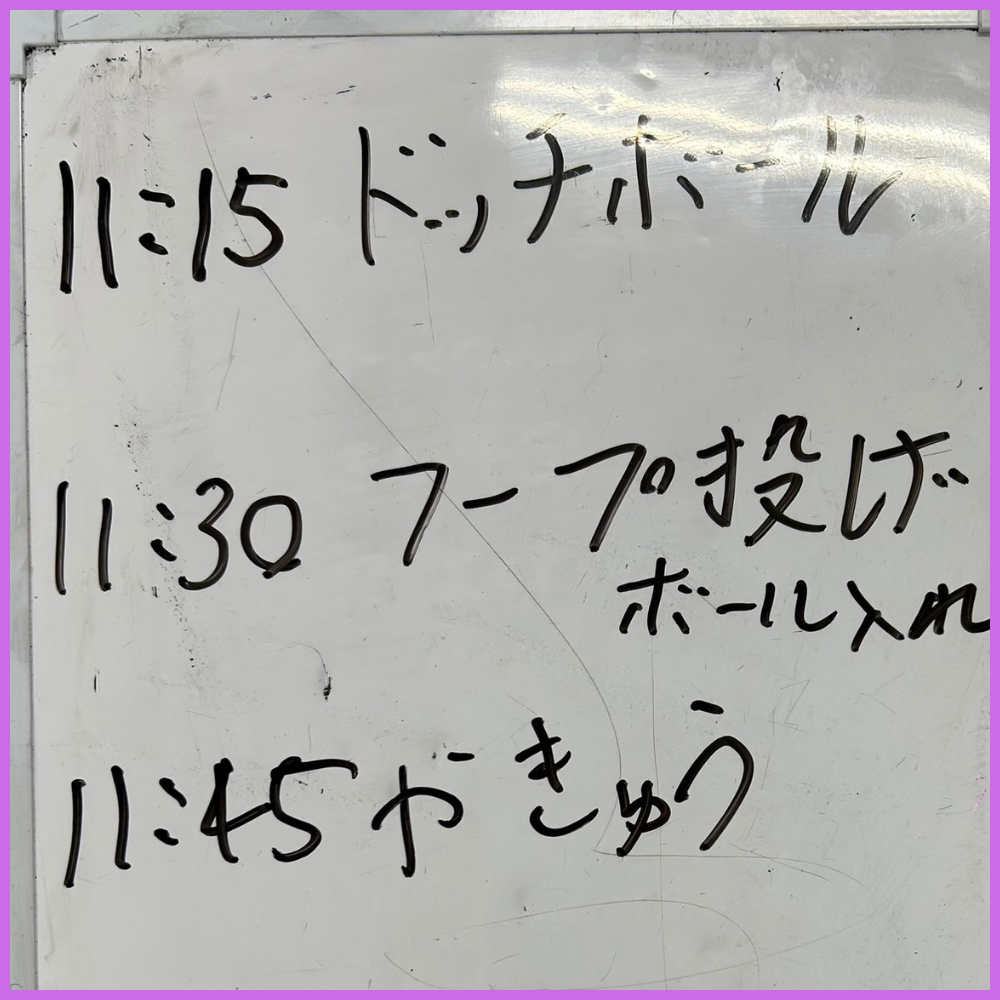 11:15 ドッチボール
11:30 フープ投げ
ボール入れ
11:45 やきゅう